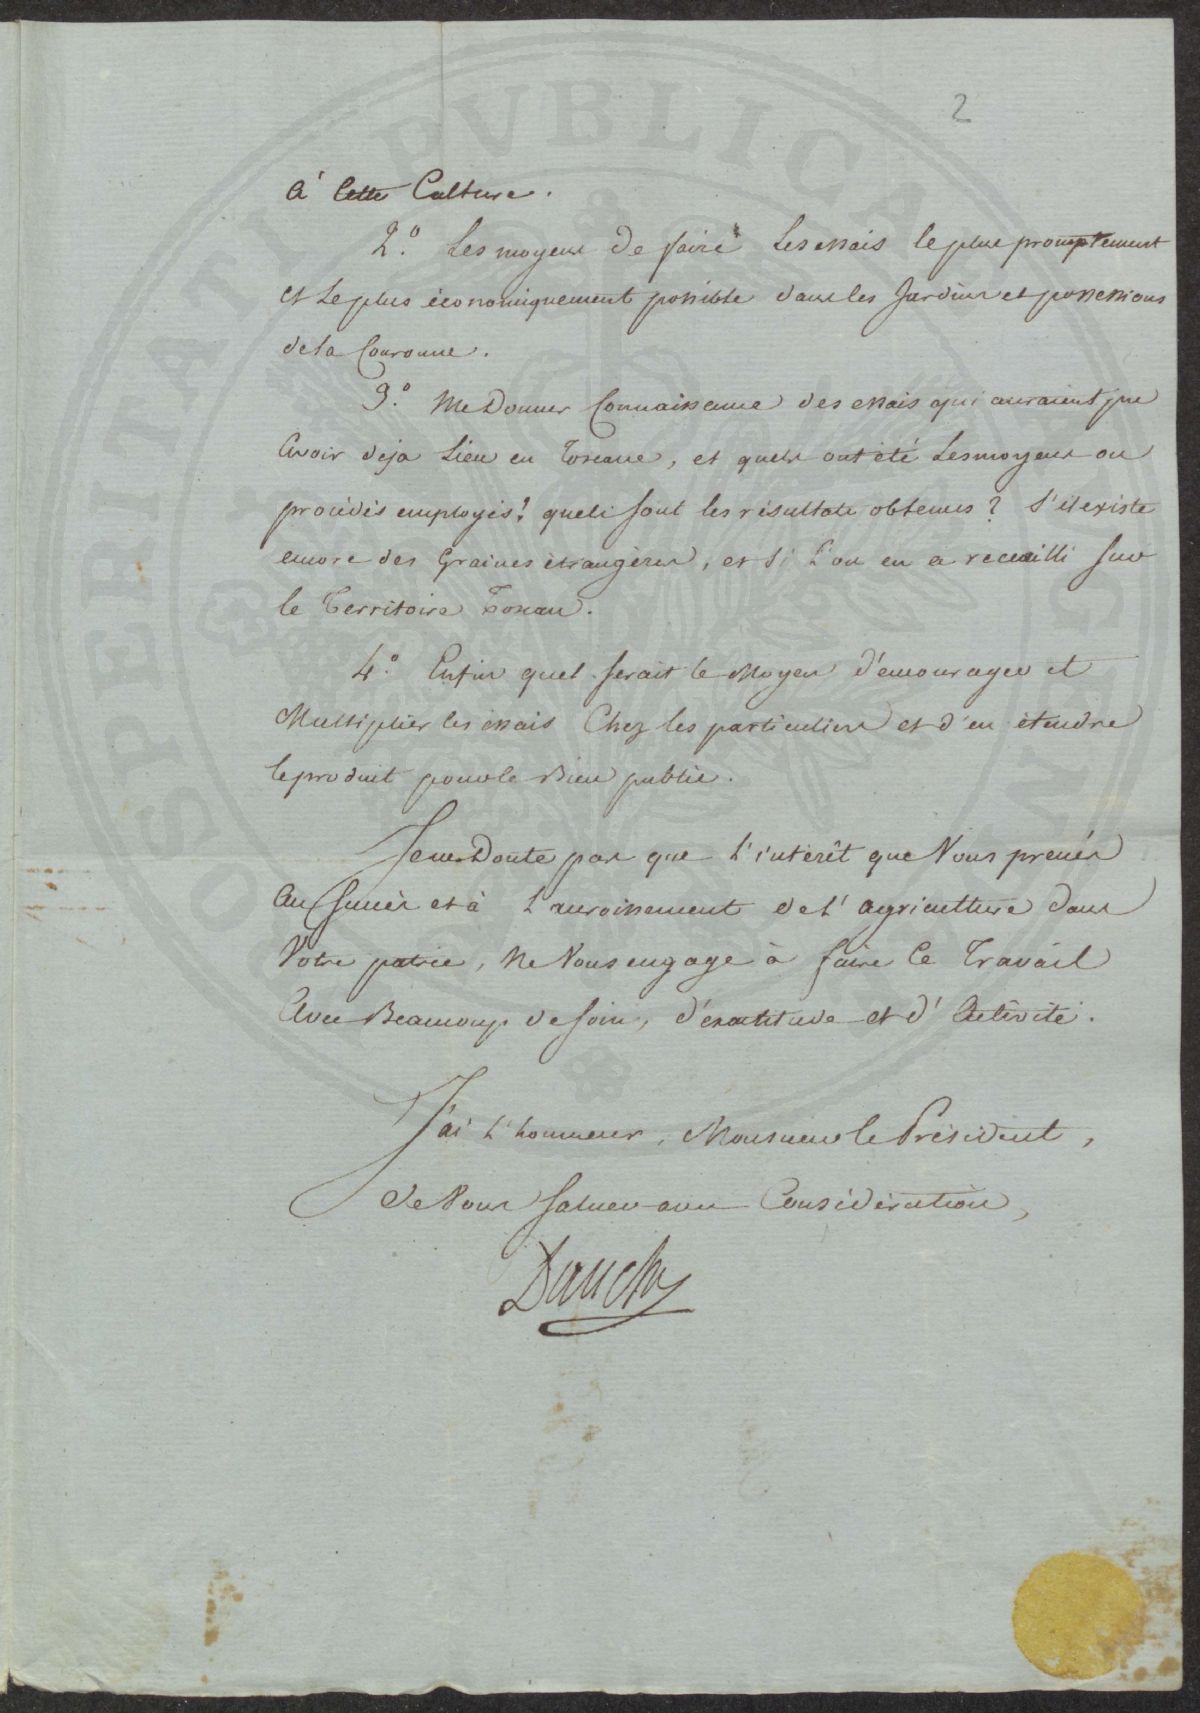 2
à Cette Culture.
2.° Les moyens de faire les essais le plus promptement
et le plus économiquement possible dans les Jardins et possessions
de la Couronne.
3.° Me Donner Connaissance des essais qui auraient pu
avoir déja Lieu en Toscane, et quels ont été Les moyens ou
procédés employés? quels sont les résultats obtenus? S'il existe
encore des Graines étrangères, et Si l'on en a recueilli sur
le Territoire Toscan.
4.° Enfin quel serait le Moyen d'encourager et
Multiplier les essais Chez les particuliers et d'en étendre
le produit pour le Bien public.
Je ne Doute pas que l'intérêt que Vous prenés
au Succès et à l'accroissement de l'agriculture dans
Votre patrie, Ne Vous engage à faire Ce Travail
Avec Beaucoup de soin, d'exactitude et d'Activité.
J'ai l'honneur, Monsieur le Président,
de Vous Saluer avec Considération,
Dauchy
PUBLICA